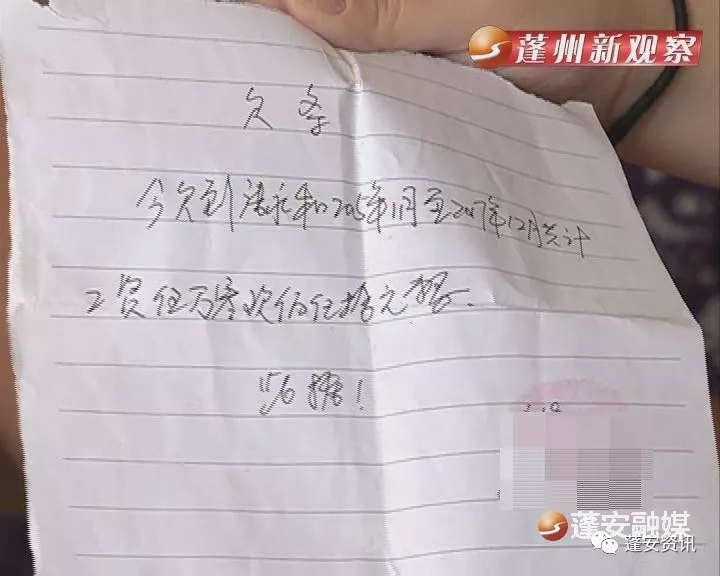 蓬州新观察
欠条
今欠到 2015年1月至2017年12月共计
工资伍万零 佰伍拾元整.
此据！
蓬安融媒
蓬安资讯